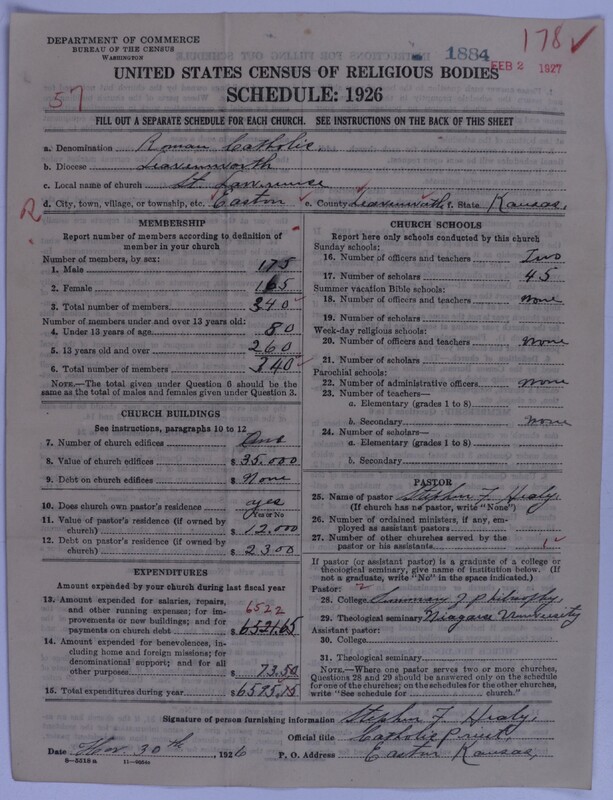 DEPARTMENT OF COMMERCE
BUREAU OF THE CENSUS
WASHINGTON
1884
178 ✓
FEB 2 1927
UNITED STATES CENSUS OF RELIGIOUS BODIES
57
SCHEDULE: 1926
FILL OUT A SEPARATE SCHEDULE FOR EACH CHURCH. SEE INSTRUCTIONS ON THE BACK OF THIS SHEET
a. Denomination Roman Catholic,
b. Diocese Leavenworth
c. Local name of church St. Lawrence
d. City, town, village, or township, etc. Easton e. County Leavenworth f. State Kansas,
R
MEMBERSHIP
Report number of members according to definition of
member in your church
Number of members, by sex:
1. Male 175
2. Female 165
3. Total number of members 340
Number of members under and over 13 years old:
4. Under 13 years of age 80
5. 13 years old and over 260
6. Total number of members 340
NOTE.—The total given under Question 6 should be the
same as the total of males and females given under Question 3.
CHURCH BUILDINGS
See instructions, paragraphs 10 to 12
7. Number of church edifices One
8. Value of church edifices $ 35.000
9. Debt on church edifices $ None
10. Does church own pastor's residence yes
Yes or No
11. Value of pastor's residence (if owned by
church) $ 12.000
12. Debt on pastor's residence (if owned by
church) $ 2300
EXPENDITURES
Amount expended by your church during last fiscal year
13. Amount expended for salaries, repairs,
and other running expenses; for im-
provements or new buildings; and for
payments on church debt 6522
$ 6521.65
14. Amount expended for benevolences, in-
cluding home and foreign missions; for
denominational support; and for all
other purposes $ 73.50
15. Total expenditures during year $ 6595.15
CHURCH SCHOOLS
Report here only schools conducted by this church
Sunday schools:
16. Number of officers and teachers Two
17. Number of scholars 45
Summer vacation Bible schools:
18. Number of officers and teachers None
19. Number of scholars
Week-day religious schools:
20. Number of officers and teachers None
21. Number of scholars
Parochial schools:
22. Number of administrative officers None
23. Number of teachers—
a. Elementary (grades 1 to 8)
b. Secondary None
24. Number of scholars—
a. Elementary (grades 1 to 8)
b. Secondary
PASTOR
25. Name of pastor Stephen F Healy,
(If church has no pastor, write "None")
26. Number of ordained ministers, if any, em-
ployed as assistant pastors
27. Number of other churches served by the
pastor or his assistants 1
If pastor (or assistant pastor) is a graduate of a college or
theological seminary, give name of institution below. (If
not a graduate, write "No" in the space indicated.)
Pastor:
28. College Seminary of philosophy,
29. Theological seminary Niagara University
Assistant pastor:
30. College
31. Theological seminary
NOTE.—Where one pastor serves two or more churches,
Questions 28 and 29 should be answered only on the schedule
for one of the churches; on the schedules for the other churches,
write "See schedule for church."
Signature of person furnishing information Stephen F Healy,
Official title Catholic priest,
Date Nov. 30th, 1926 P. O. Address Easton Kansas,
8-5318 a